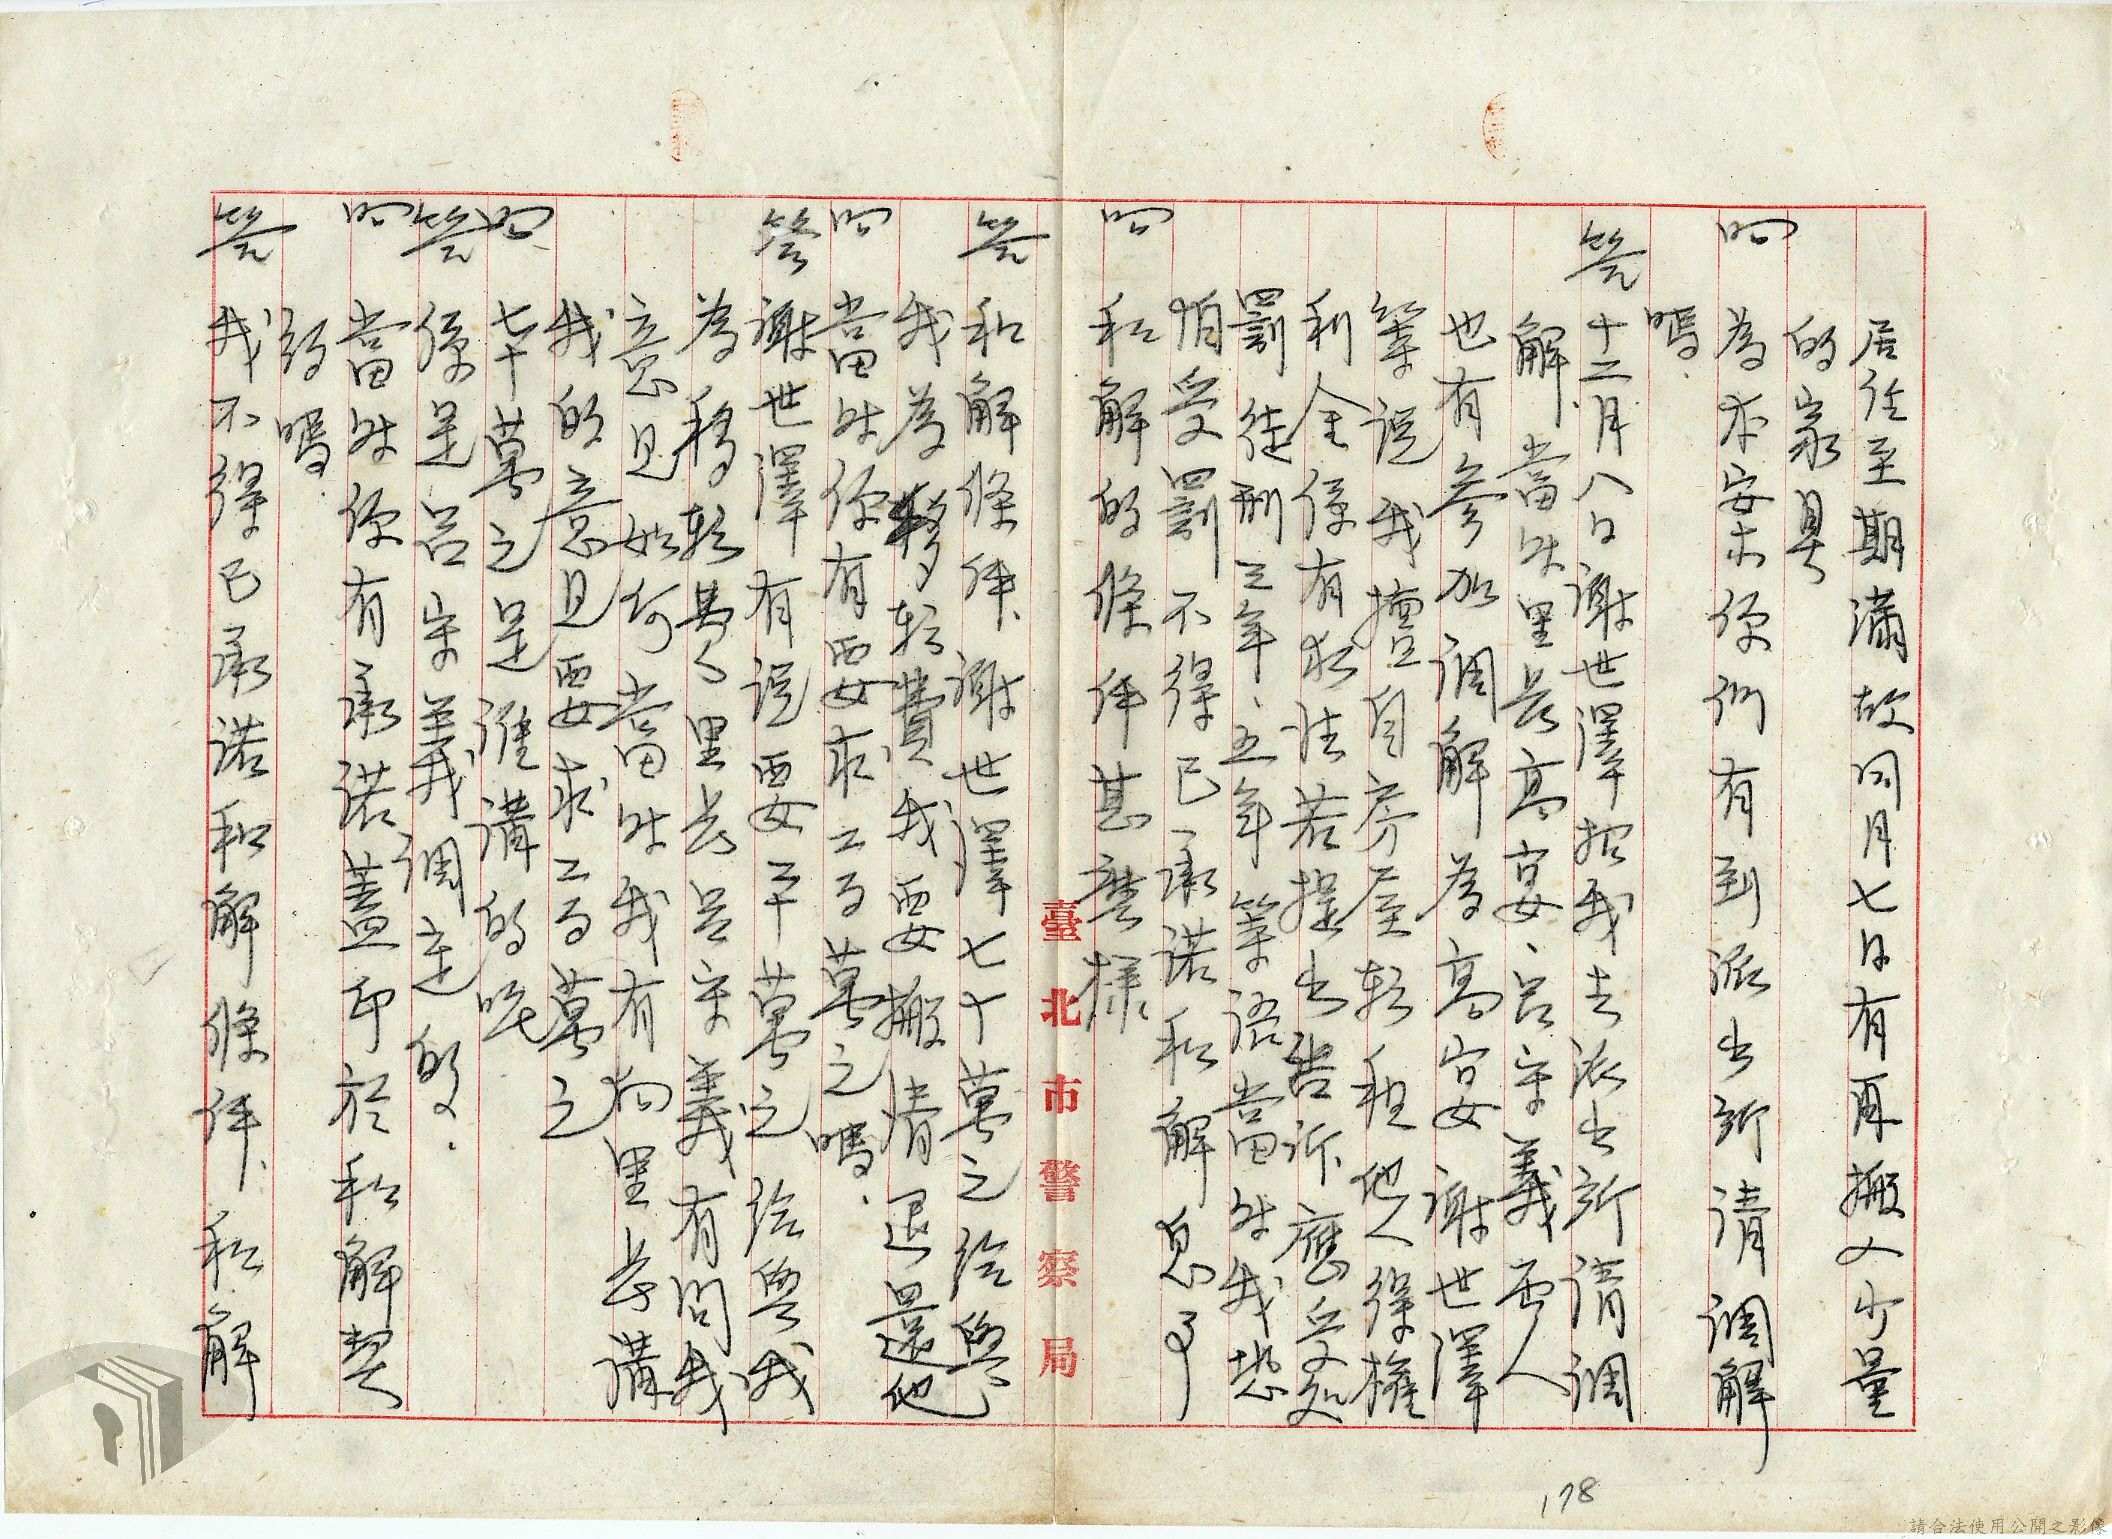 居住至期滿故同月七日有再搬入少量
的家具
問 為本案你們有到派出所請調解
嗎.
答 十二月八日謝世澤招我去派出所請調
解、當時里長高宴、呂宋義兩人
也有參加調解為高宴謝世澤
等説我擅自房屋轉租他人得權
利金係有犯法若提出告訴、應受処
罰徒刑三年、五年等語當時我恐
怕受罰不得已承諾和解息事
問 和解的條件甚麼樣
答 和解條件、謝世澤七十萬元給與
我為移轉費我要搬清退還他
問 當時你有要求二百萬元嗎.
答 謝世澤有説要三千萬元給與我
為移轉費、里長呂宋義有問我
意見如何當時我有向里長講
我的意見要求二百萬元
問 七十萬元是誰講的呢
答 係是呂宋義調定的.
問 當時你有承諾蓋印於和解契
約嗎
答 我不得已承諾和解條件、和解
臺北市警察局
178
請合法使用公開之影像